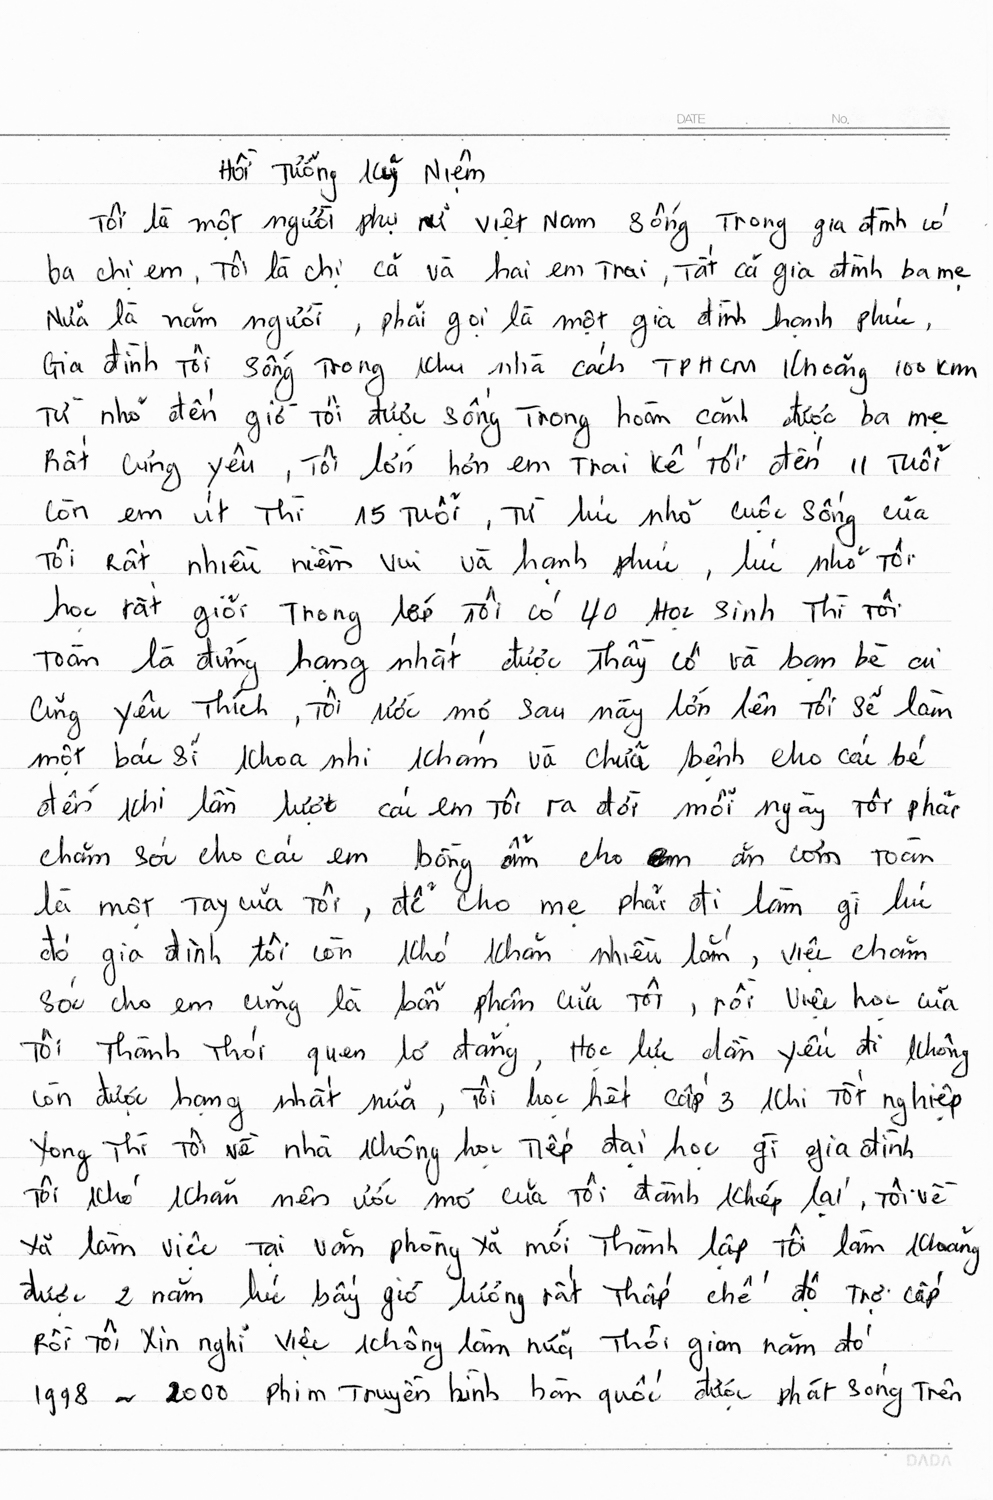 DATE . . No.
Hồi Tưởng Kỷ Niệm
Tôi là một người phụ nữ việt Nam sống Trong gia đình có
ba chị em, Tôi là chị cả và hai em Trai, Tất cả gia đình ba mẹ
Nữa là năm người, phải gọi là một gia đình hạnh phúc,
Gia đình Tôi sống Trong khu nhà cách TPHCM khoảng 100 km
Từ nhỏ đến giờ Tôi được sống Trong hoàn cảnh được ba mẹ
Rất cưng yêu, Tôi lớn hơn em Trai kế Tôi đến 11 Tuổi
Còn em út Thì 15 Tuổi, Từ lúc nhỏ cuộc sống của
Tôi Rất nhiều niềm vui và hạnh phúc, lúc nhỏ Tôi
học rất giỏi Trong lớp Tôi có 40 Học sinh Thì Tôi
Toàn là đứng hạng nhất được Thầy cô và bạn bè ai
Cũng yêu Thích, Tôi ước mơ sau này lớn lên Tôi sẽ làm
một bác sĩ khoa nhi khám và chữa bệnh cho các bé
đến khi lần lượt các em Tôi ra đời mỗi ngày Tôi phải
chăm sóc cho các em bồng ẩm cho em ăn cơm Toàn
là một Tay của Tôi, để cho mẹ phải đi làm gì lúc
đó gia đình tôi còn khó khăn nhiều lắm, việc chăm
sóc cho em cũng là bổn phận của Tôi, rồi việc học của
Tôi Thành Thói quen lơ đãng, Học lực dần yếu đi không
còn được hạng nhất nữa, Tôi học hết cấp 3 khi Tốt nghiệp
xong Thì Tôi về nhà không học Tiếp đại học gì gia đình
Tôi khó khăn nên ước mơ của Tôi đành khép lại, Tôi về
xã làm việc Tại văn phòng xã mới Thành lập Tôi làm khoảng
được 2 năm lúc bấy giờ lương rất Thấp chế độ Trợ cấp
Rồi Tôi xin nghỉ việc không làm nữa Thời gian năm đó
1998 ~ 2000 phim Truyền hình hàn quốc được phát sóng Trên
DADA